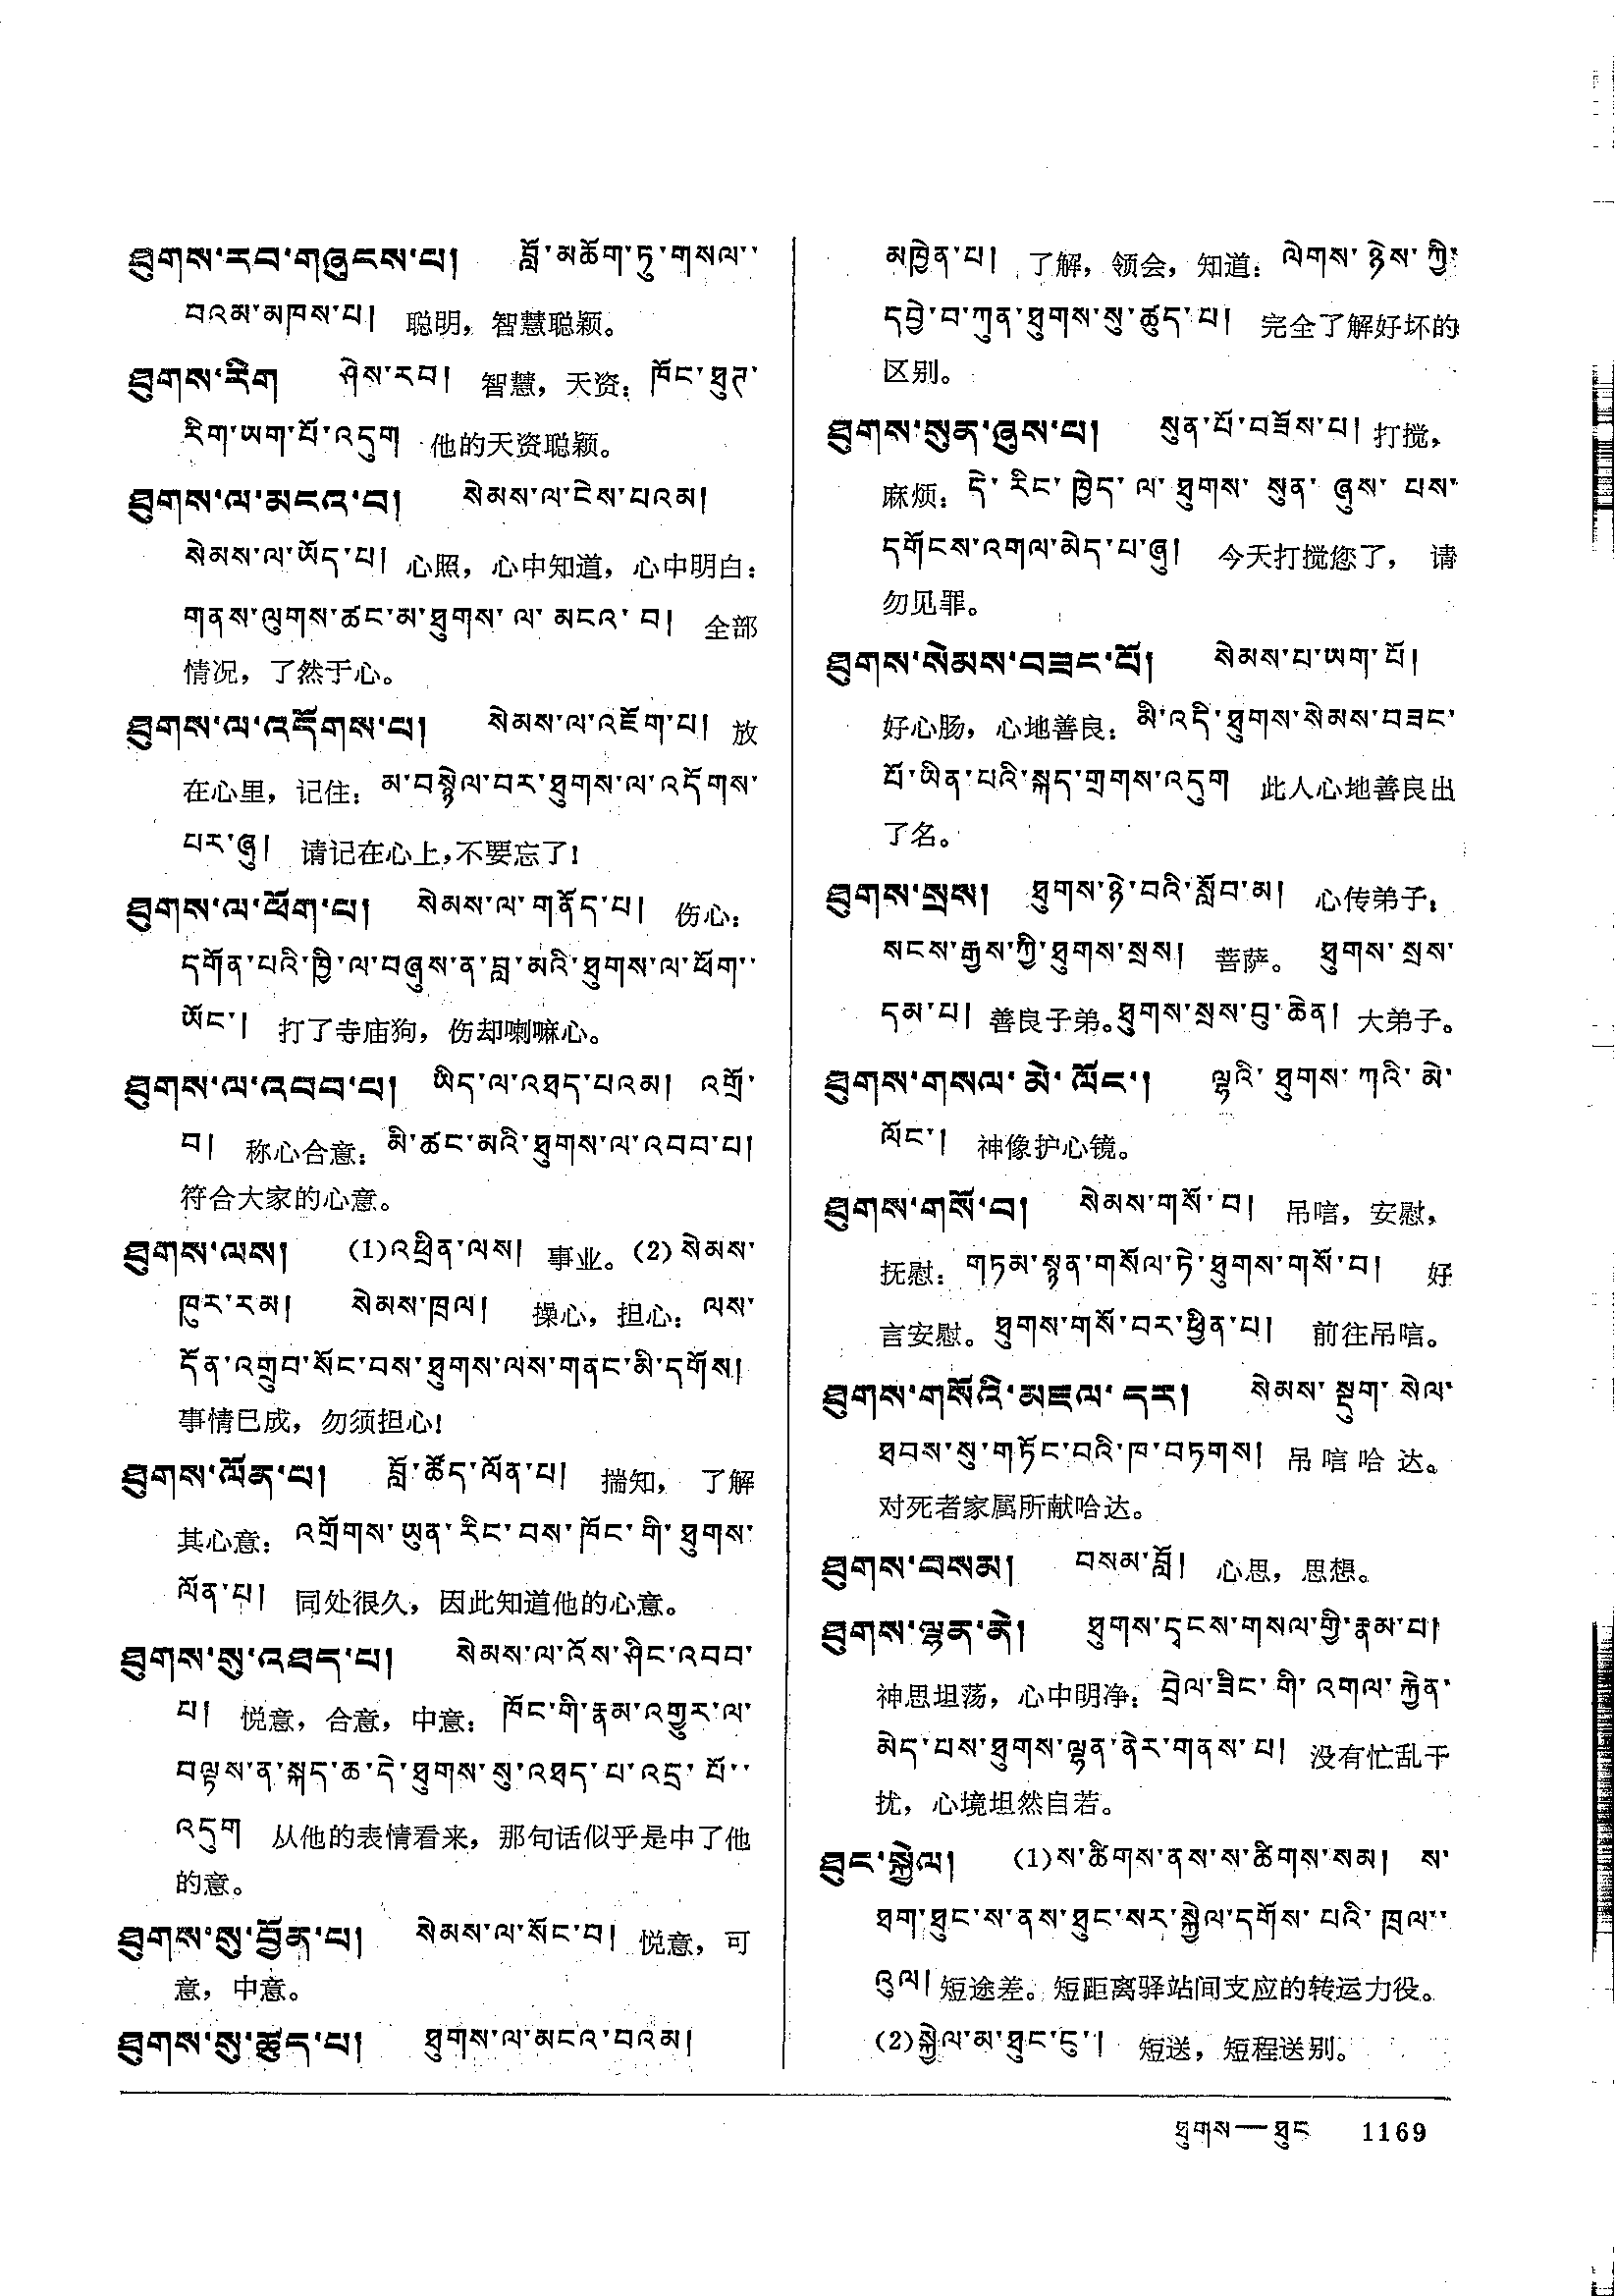 ཐུགས་རབ་གཞུངས་པ། བློ་མཆོག་ཏུ་གསལ་་
བའམ་མཁས་པ། 聪明，智慧聪颖。
ཐུགས་རིག ཤེས་རབ། 智慧，天资：ཁོང་ཐུཊ་
རིག་ཡག་པོ་འདུག 他的天资聪颖。
ཐུགས་ལ་མངའ་བ། སེམས་ལ་ངེས་པའམ།
སེམས་ལ་ཡོད་པ། 心照，心中知道，心中明白：
གནས་ལུགས་ཚང་མ་ཐུགས་ལ་མངའ་བ། 全部
情况，了然于心。
ཐུགས་ལ་འདོགས་པ། སེམས་ལ་འཇོག་པ། 放
在心里，记住：མ་བསྙེལ་བར་ཐུགས་ལ་འདོགས་
པར་ཞུ། 请记在心上，不要忘了！
ཐུགས་ལ་ཕོག་པ། སེམས་ལ་གནོད་པ། 伤心：
དགོན་པའི་ཁྱི་ལ་བཞུས་ན་བླ་མའི་ཐུགས་ལ་ཕོག་་
ཡོང་། 打了寺庙狗，伤却喇嘛心。
ཐུགས་ལ་འབབ་པ། ཡིད་ལ་འཐད་པའམ། འགྲོ་
བ། 称心合意：མི་ཚང་མའི་ཐུགས་ལ་འབབ་པ།
符合大家的心意。
ཐུགས་ལས། (1)འཕྲིན་ལས། 事业。(2)སེམས་
ཁུར་རམ། སེམས་ཁྲལ། 操心，担心：ལས་
དོན་འགྲུབ་སོང་བས་ཐུགས་ལས་གནང་མི་དགོས།
事情已成，勿须担心！
ཐུགས་ལོན་པ། བློ་ཚོད་ལོན་པ། 揣知，了解
其心意：འགྲོགས་ཡུན་རིང་བས་ཁོང་གི་ཐུགས་
ལོན་པ། 同处很久，因此知道他的心意。
ཐུགས་སུ་འཐད་པ། སེམས་ལ་འོས་ཤིང་འབབ་
པ། 悦意，合意，中意：ཁོང་གི་རྣམ་འགྱུར་ལ་
བལྟས་ན་སྐད་ཆ་དེ་ཐུགས་སུ་འཐད་པ་འདྲ་པོ་་
འདུག 从他的表情看来，那句话似乎是中了他
的意。
ཐུགས་སུ་བྱོན་པ། སེམས་ལ་སོང་བ། 悦意，可
意，中意。
ཐུགས་སུ་ཚུད་པ། ཐུགས་ལ་མངའ་བའམ།
མཁྱེན་པ། 了解，领会，知道：ལེགས་ཉེས་ཀྱི་
དབྱེ་བ་ཀུན་ཐུགས་སུ་ཚུད་པ། 完全了解好坏的
区别。
ཐུགས་སུན་ཞུས་པ། སུན་པོ་བཟོས་པ། 打搅，
麻烦：དེ་རིང་ཁྱེད་ལ་ཐུགས་སུན་ཞུས་པས་
དགོངས་འགལ་མེད་པ་ཞུ། 今天打搅您了，请
勿见罪。
ཐུགས་སེམས་བཟང་པོ། སེམས་པ་ཡག་པོ།
好心肠，心地善良：མི་འདི་ཐུགས་སེམས་བཟང་
པོ་ཡིན་པའི་སྐད་གྲགས་འདུག 此人心地善良出
了名。
ཐུགས་སྲས། ཐུགས་ཉེ་བའི་སློབ་མ། 心传弟子：
སངས་རྒྱས་ཀྱི་ཐུགས་སྲས། 菩萨。 ཐུགས་སྲས་
དམ་པ། 善良子弟。ཐུགས་སྲས་བུ་ཆེན། 大弟子。
ཐུགས་གསལ་མེ་ལོང་། ལྷའི་ཐུགས་ཀའི་མེ་
ལོང་། 神像护心镜。
ཐུགས་གསོ་བ། སེམས་གསོ་བ། 吊唁，安慰，
抚慰：གཏམ་སྙན་གསོལ་ཏེ་ཐུགས་གསོ་བ། 好
言安慰。ཐུགས་གསོ་བར་ཕྱིན་པ། 前往吊唁。
ཐུགས་གསོའི་མཇལ་དར། སེམས་སྡུག་སེལ་
ཐབས་སུ་གཏོང་བའི་ཁ་བཏགས། 吊唁哈达。
对死者家属所献哈达。
ཐུགས་བསམ། བསམ་བློ། 心思，思想。
ཐུགས་ལྷན་ནེ། ཐུགས་དྭངས་གསལ་གྱི་རྣམ་པ།
神思坦荡，心中明净：བྲེལ་ཟིང་གི་འགལ་རྐྱེན་
མེད་པས་ཐུགས་ལྷན་ནེར་གནས་པ། 没有忙乱干
扰，心境坦然自若。
ཐུང་སྐྱེལ། (1)ས་ཚིགས་ནས་ས་ཚིགས་སམ། ས་
ཐག་ཐུང་ས་ནས་ཐུང་སར་སྐྱེལ་དགོས་པའི་ཁྲལ་་
འུལ། 短途差。短距离驿站间支应的转运力役。
(2)སྐྱེལ་མ་ཐུང་ངུ་། 短送，短程送别。
ཐུགས—ཐུང 1169